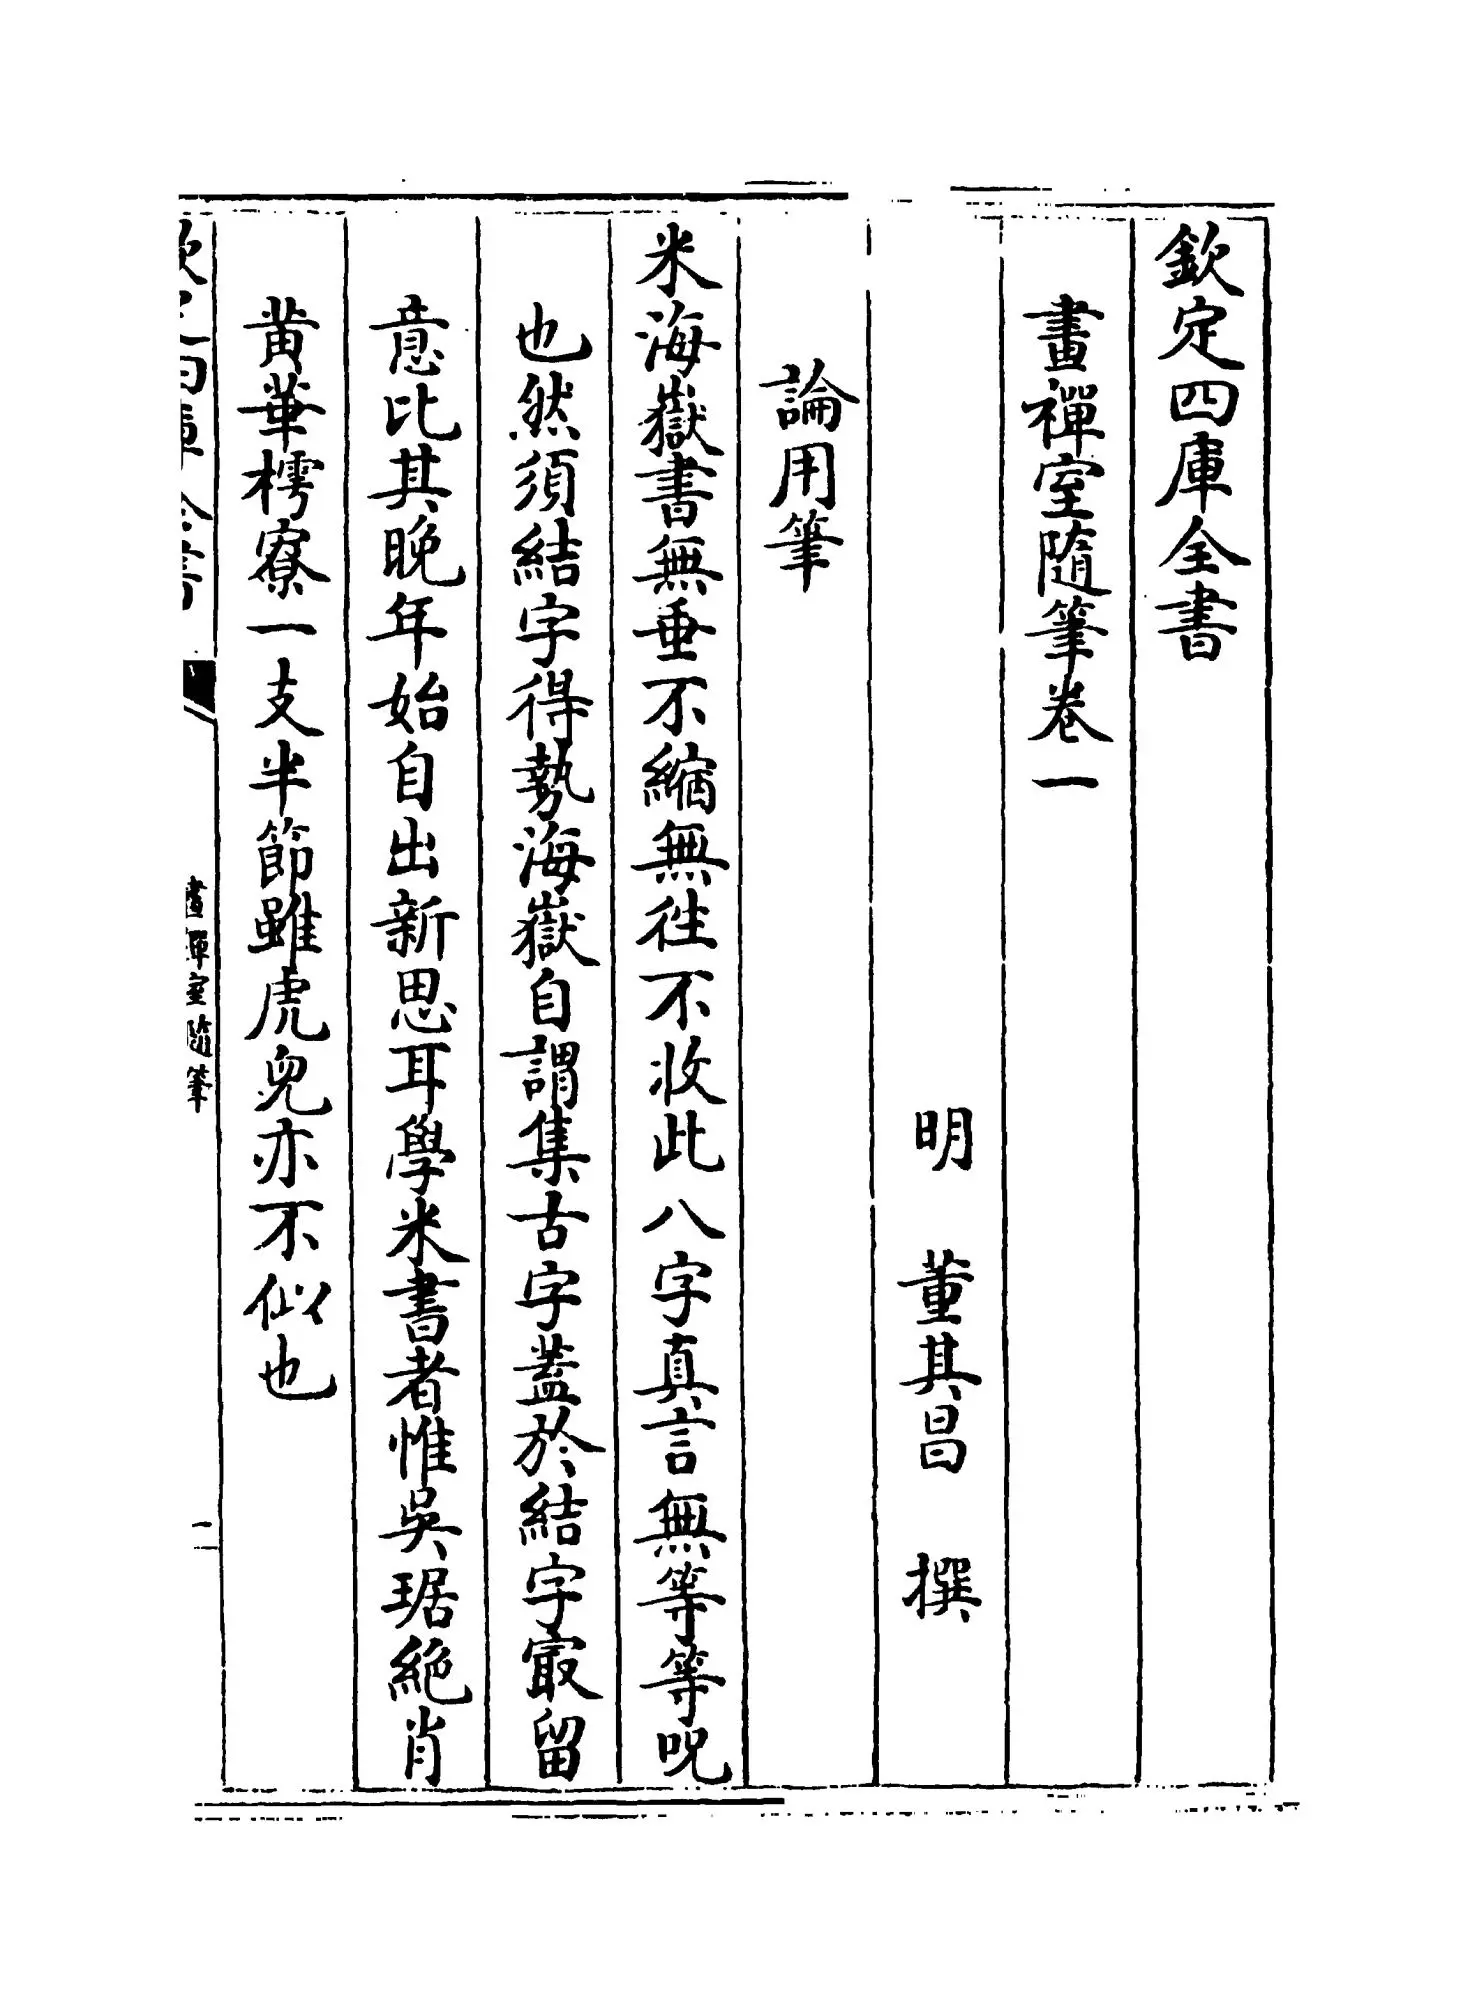 欽定四庫全書
畫禪室隨筆卷一
明 董其昌 撰
論用筆
米海嶽書無垂不縮無往不收此八字真言無等等呪
也然須結字得勢海嶽自謂集古字蓋於結字最留
意比其晚年始自出新思耳學米書者惟吳琚絕肖
黃華樗寮一支半節雖虎兒亦不似也
欽定四庫全書
畫禪室隨筆
一